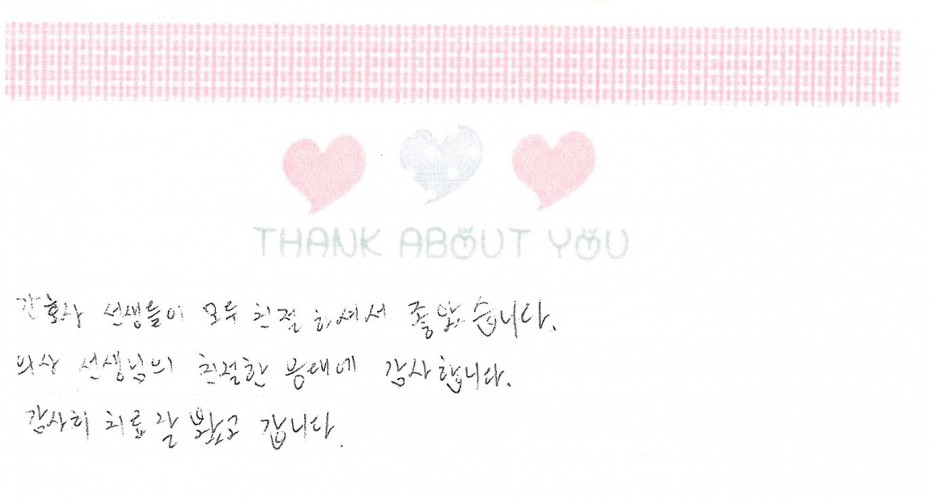 THANK ABOUT YOU
간호사 선생들이 모두 친절 하셔서 좋았습니다.
의사 선생님의 친절한 응대에 감사합니다.
감사히 치료 잘 받고 갑니다.